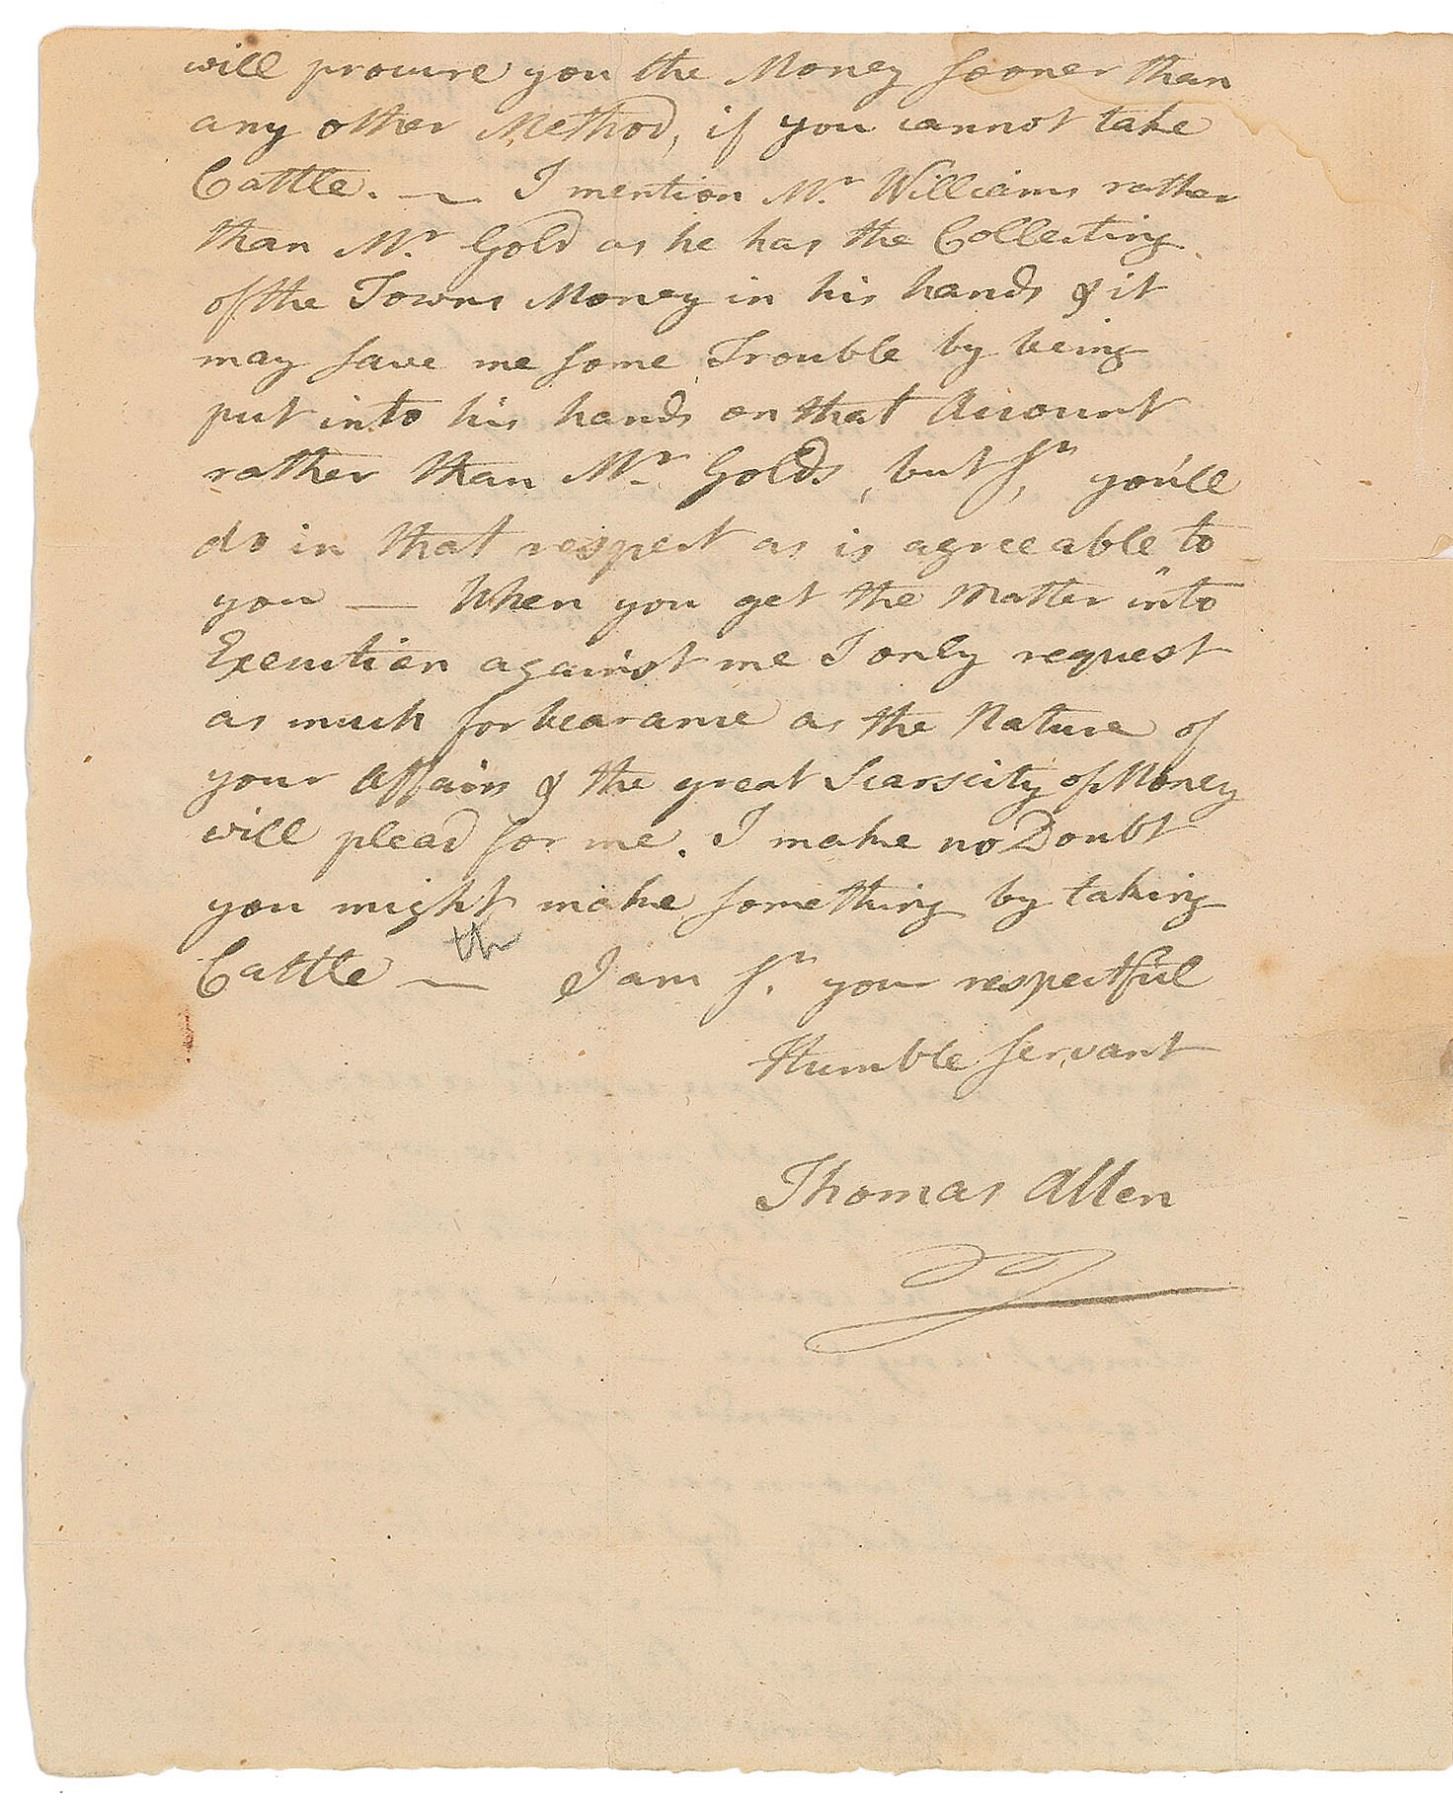 will procure you the Money sooner than
any other Method, if you cannot take
Cattle. — I mention Mr. Williams rather
than Mr. Gold as he has the Collecting
of the Towns Money in his hands & it
may save me some Trouble by being
put into his hands on that Account
rather than Mr. Golds, but Sr, you'll
do in that respect as is agreeable to
you — When you get the Matter into
Execution against me I only request
as much forbearance as the Nature of
your Affairs & the great Scarscity of Money
will plead for me. I make no Doubt
you might make something by taking
th
Cattle — I am Sr. your respectful
Humble servant
Thomas Allen